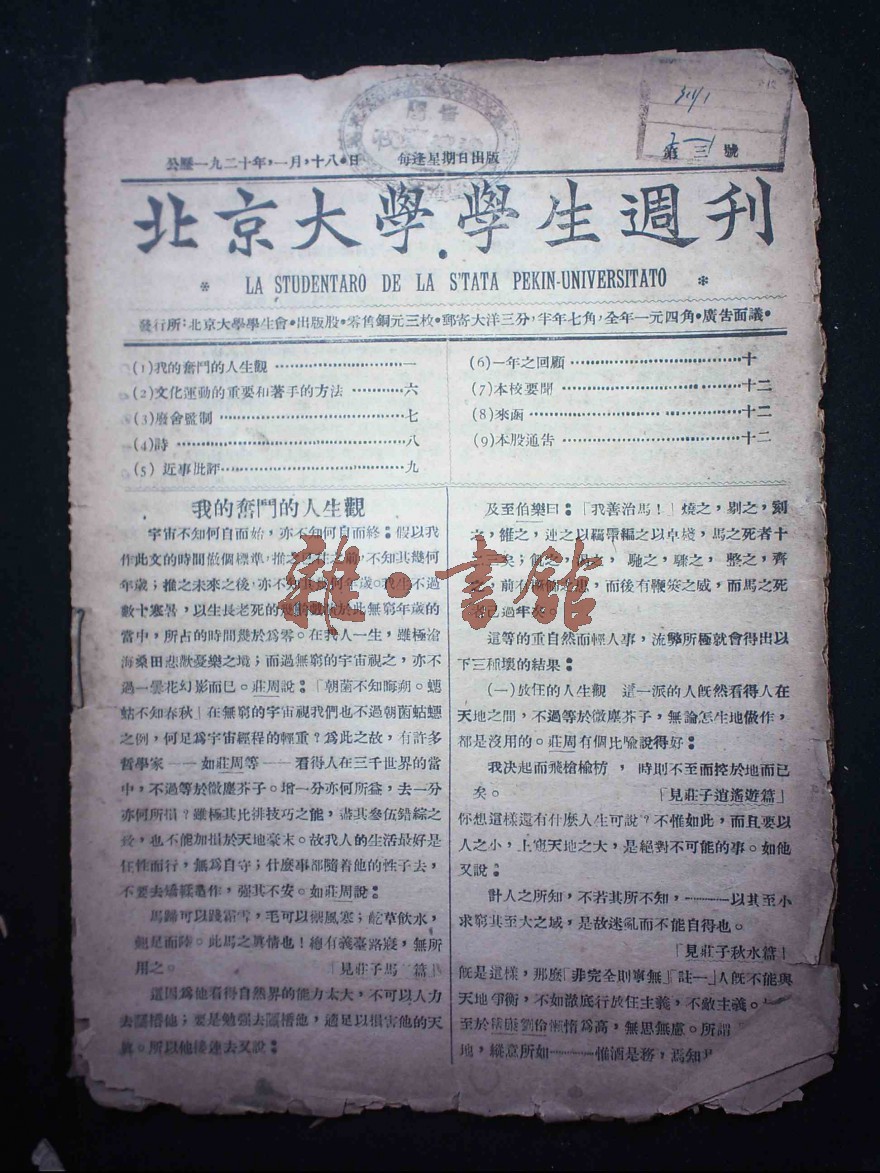 公歷一九二十年，一月，十八·日
每逢星期日出版
第三號
北京大學學生週刊
* LA STUDENTARO DE LA S'TATA PEKIN-UNIVERSITATO *
發行所：北京大學學生會·出版股·零售銅元三枚·郵寄大洋三分，半年七角，全年一元四角·廣告面議·
(1)我的奮鬥的人生觀…………一
(2)文化運動的重要和著手的方法…………六
(3)廢會監制…………七
(4)詩…………八
(5) 近事批評…………九
(6)一年之回顧…………十
(7)本校要聞…………十二
(8)來函…………十二
(9)本股通告…………十二
我的奮鬥的人生觀
宇宙不知何自而始，亦不知何自而終：假以我
作此文的時間做個標準，推之已往之前，不知其幾何
年歲；推之未來之後，亦不知其幾何年歲。我生不過
數十寒暑，以生長老死的於此無窮年歲的
當中，所占的時間幾於爲零。在我人一生，雖極滄
海桑田悲歡憂樂之境；而過無窮的宇宙視之，亦不
過一曇花幻影而已。莊周說：「朝菌不知晦朔。蟪
蛄不知春秋」在無窮的宇宙視我們也不過朝菌蛄蟪
之例，何足爲宇宙經程的輕重？爲此之故，有許多
哲學家——如莊周等——看得人在三千世界的當
中，不過等於微塵芥子。增一分亦何所益，去一分
亦何所損？雖極其比排技巧之能，盡其參伍錯綜之
，也不能加損於天地毫末。故我人的生活最好是
任性而行，無爲自守；什麼事都隨着他的性子去，
不要去矯輕作，強其不安。如莊周說：
馬蹄可以踐霜雪，毛可以禦風寒；齕草飲水，
翹足而陸。此馬之眞情也！總有義臺路寢，無所
用之。「見莊子馬 篇」
這因爲他看得自然界的能力太大，不可以人力
去他；要是勉强去他，適足以損害他的天
眞。所以他接連去又說：
及至伯樂曰：「我善治馬！」燒之，剔之，刻
之，雒之，連之以羈帶編之以皁棧，馬之死者十
矣；飢之，渴之，馳之，驟之，整之，齊
之，前有之患，而後有鞭筴之威，而馬之死
者已過半矣。
這等的重自然而輕人事，流弊所極就會得出以
下三種壞的結果：
(一)放任的人生觀 這一派的人旣然看得人在
天地之間，不過等於微塵芥子，無論怎生地做作，
都是沒用的。莊周有個比喻說得好：
我決起而飛槍楡枋，時則不至而控於地而已
矣。「見莊子逍遙遊篇」
你想這樣還有什麼人生可說？不惟如此，而且要以
人之小，上窺天地之大，是絕對不可能的事。如他
又說：
計人之所知，不若其所不知，…………以其至小
求窮其至大之域，是故迷亂而不能自得也。
「見莊子秋水篇」
旣是這樣，那麼「非完全則寧無」「註一」人旣不能與
天地爭衡，不如澈底行放任主義，不敵主義。
至於嵇康劉伶懶惰爲高，無思無慮。所謂
地，縱意所如…………惟酒是務，焉知其
雜·書館